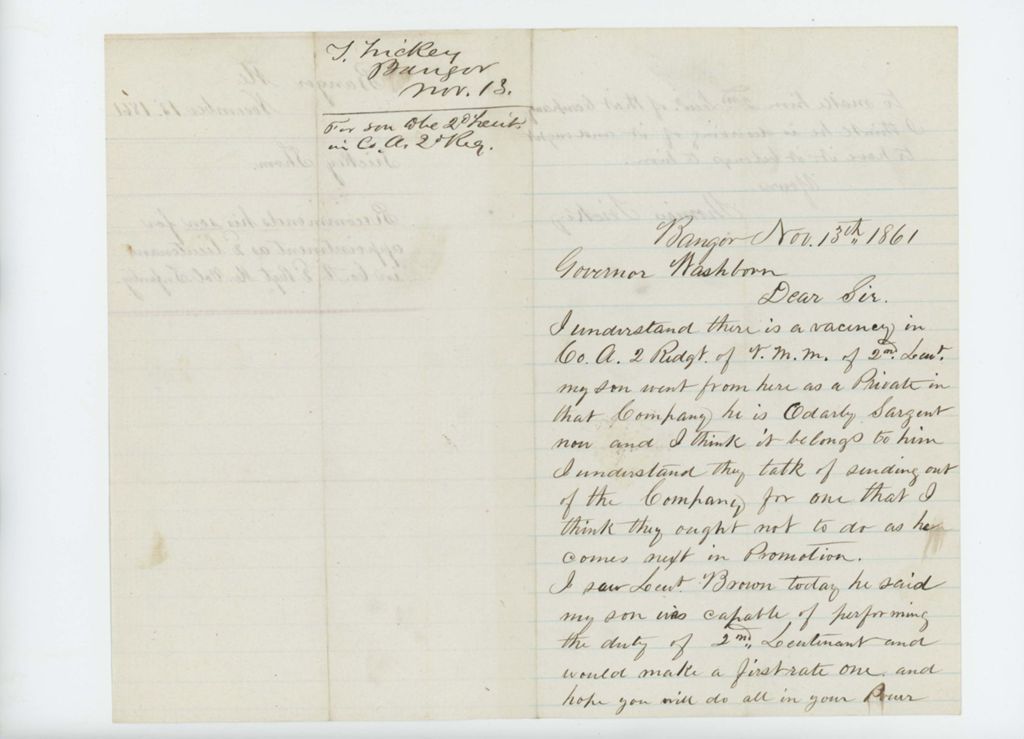 T. Trickey
Bangor
Nov. 13.
For son to be 2d Lieut.
in Co. A. 2d Reg.
Bangor Nov. 13th, 1861
Governor Washborn
Dear Sir.
I understand there is a vacency in
Co. A. 2 Redgt. of V. M. M. of 2nd. Leut.
my son went from here as a Private in
that Company he is Odarly Sargent
now and I think it belongs to him
I understand they talk of sending out
of the Company for one that I
think they ought not to do as he
comes next in Promotion.
I saw Leut. Brown today he said
my son was capable of performing
the duty of 2nd, Leutenant and
would make a first rate one. and
hope you will do all in your Power